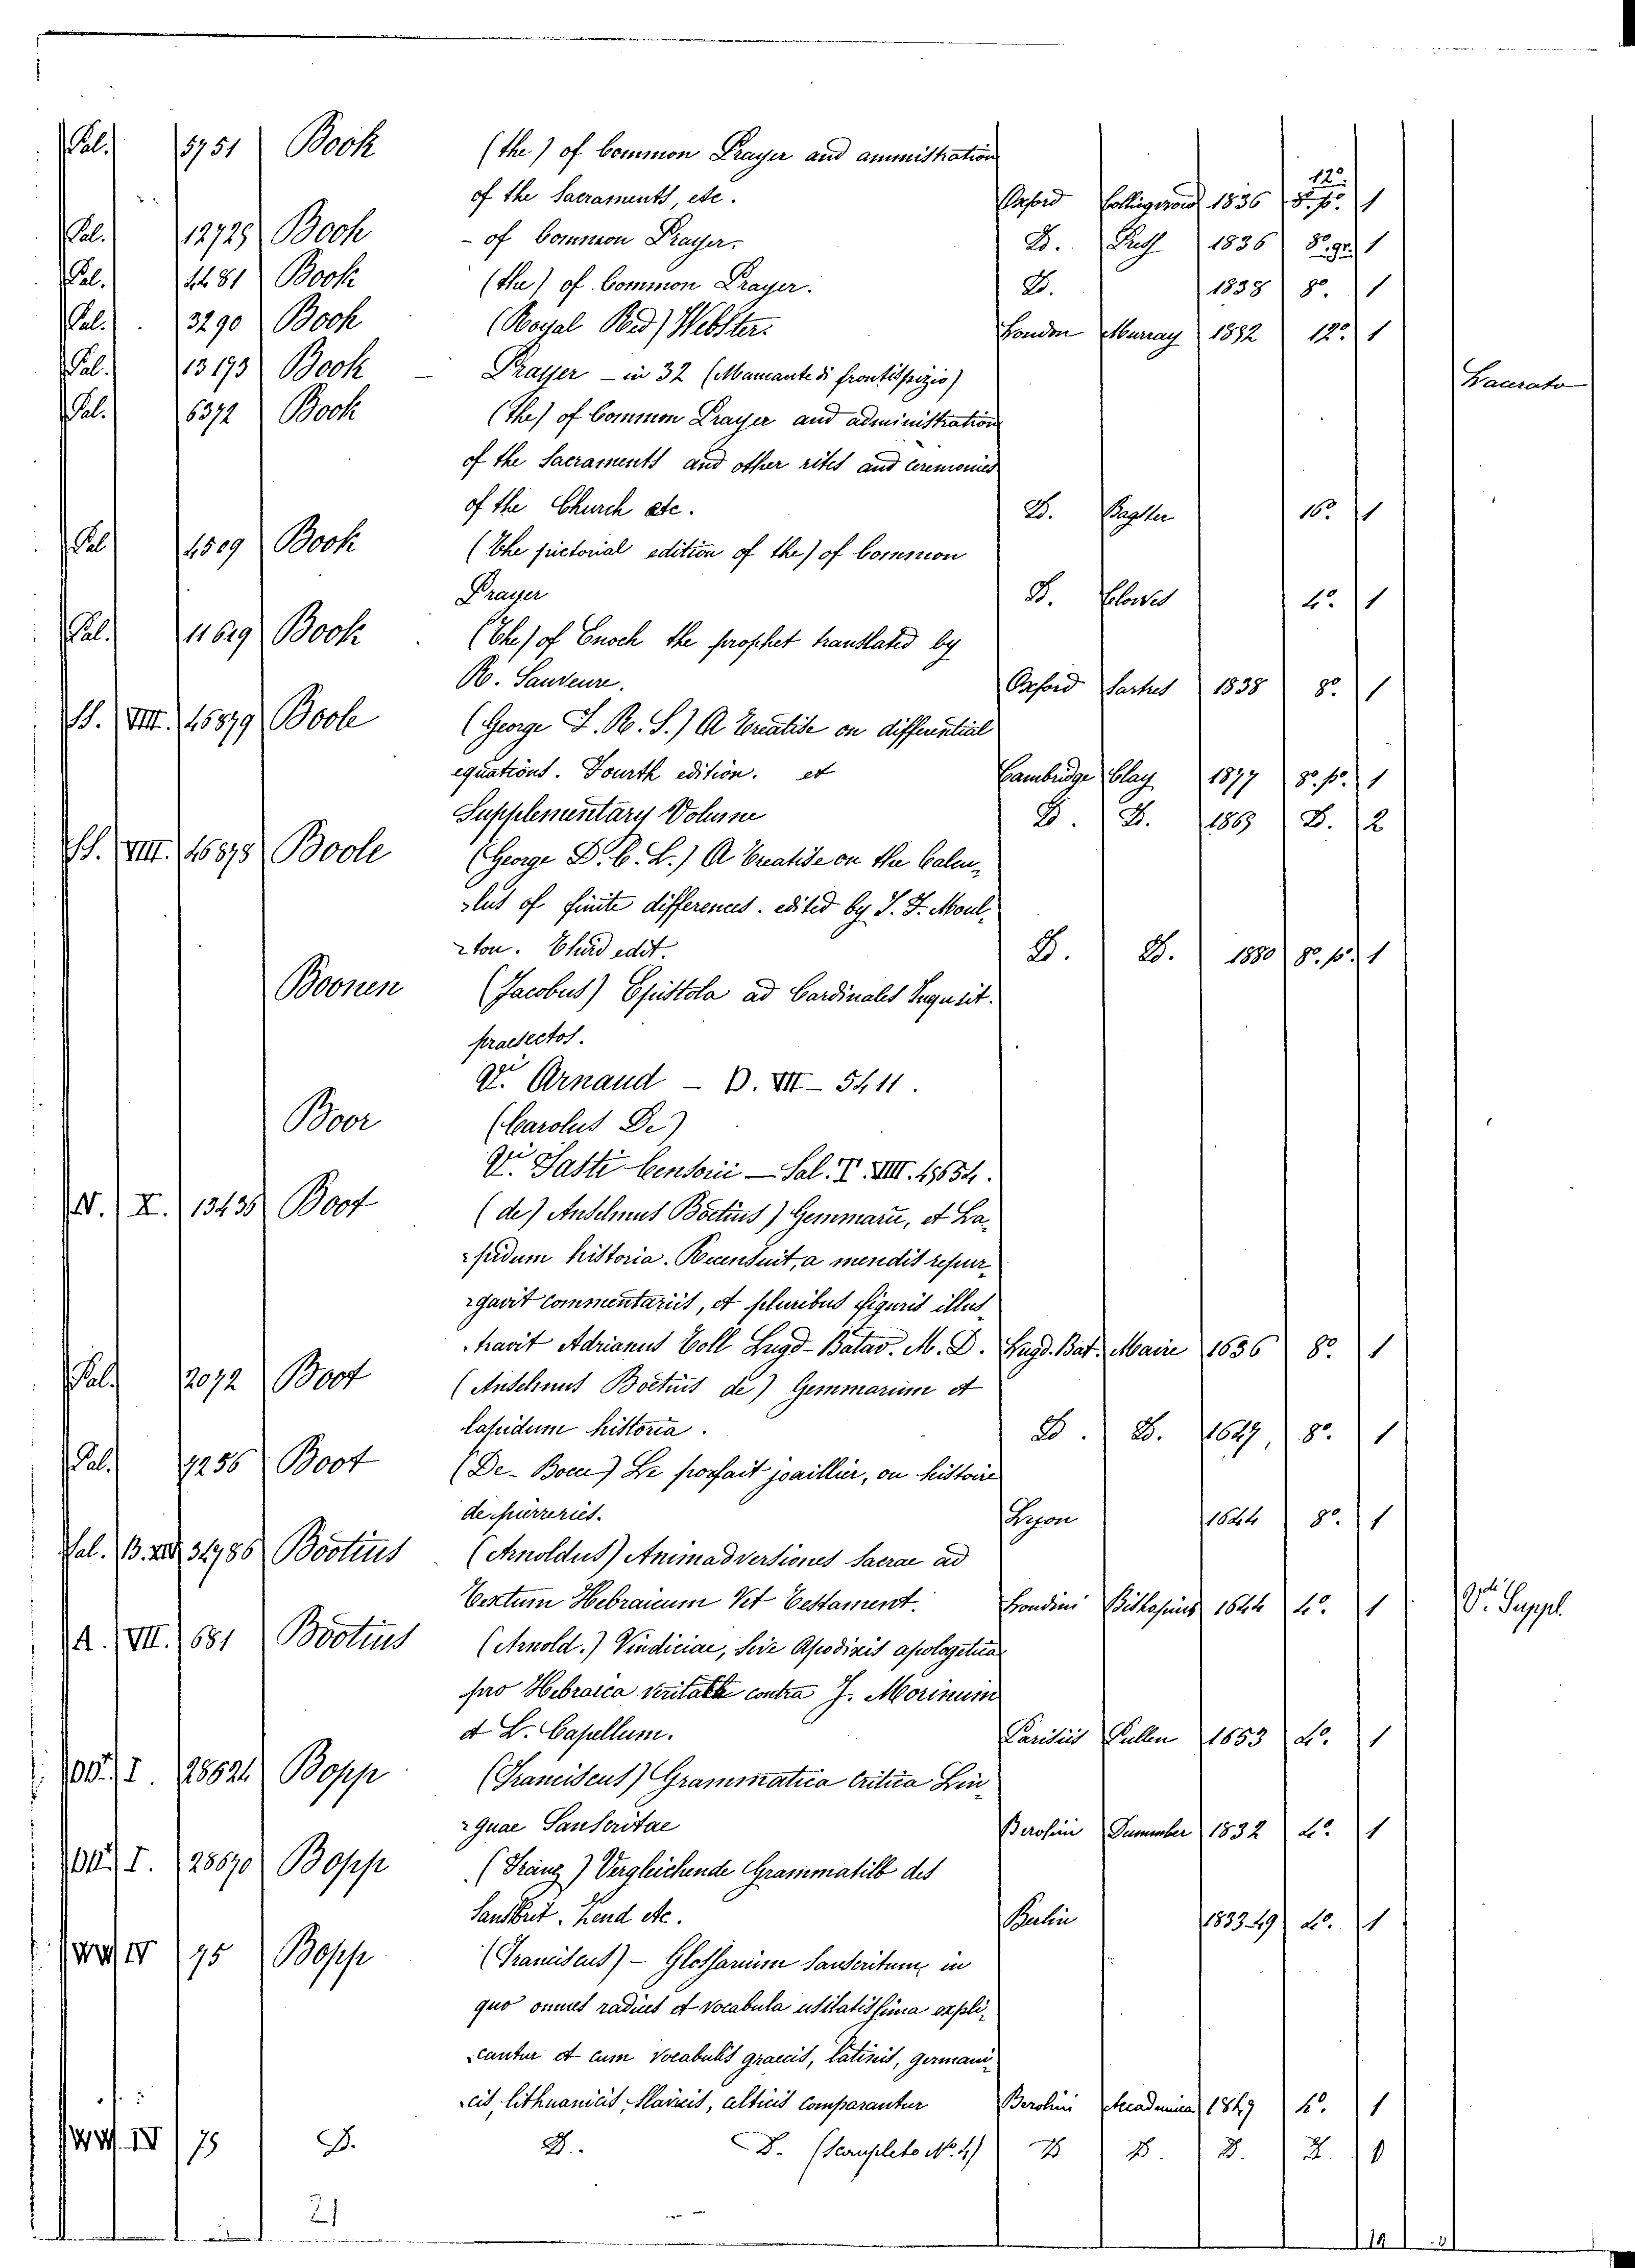 Pal. 5751 Book (the) of Common Prayer and amministration
of the Sacraments, etc. Oxford Collingwood 1836 12.° 8.° p.° 1
Pal. 12729 Book - of Common Prayer. D. 1836 8.° gr. 1
Pal. 4481 Book (the) of Common Prayer. D. 1838 8.° 1
Pal. 3290 Book (Royal Red) Webster. London Murray 12.° 1
Pal. 13193 Book - Prayer - in 32 (Mancante di frontispizio) Lacerato
Pal. 6372 Book (The) of Common Prayer and administration
of the Sacraments and other rites and ceremonies
of the Church etc. D. Bagster 16.° 1
Pal. 4509 Book (The pictorial edition of the) of Common
Prayer D. Clowes 4.° 1
Pal. 11619 Book (The) of Enoch the prophet translated by
R. Oxford 1838 8.° 1
VIII. 45879 Boole (George F. R. S.) A Treatise on differential
equations. Fourth edition. et Cambridge Clay 1877 8.° p.° 1
Supplementary Volume D. D. 1865 D. 2
VIII. 45878 Boole (George D. C. L.) A Treatise on the Calcu-
-lus of finite differences. edited by J. F. Moul-
-ton. Third edit. D. D. 1880 8.° p.° 1
Boonen (Jacobus) Epistola ad Cardinales Inquisit.
praesectos.
Vi Arnaud - D. VII - 5411.
Boor (Carolus De)
Vi Fasti Censorii - Sal. T. VIII. 45654.
N. X. 13435 Boot (de) Anselmus Boetius) Gemmaru, et La-
-pidum historia. Recensuit, a mendis repur-
-gavit commentariis, et pluribus figuris illus-
-travit Adrianus Toll Lugd-Batav. M. D. Lugd. Bat. Maire 1636 8.° 1
Pal. 2072 Boot (Anselmus Boetius de) Gemmarum et
lapidum historia. D. D. 1647 8.° 1
Pal. 7256 Boot (De- Boece) Le parfait joaillier, ou histoire
de pierreries. Lyon 1644 8.° 1
Sal. B. 34786 Bootius (Arnoldus) Animadversiones sacrae ad
Textum Hebraicum Vet Testament. Londini 1644 4.° 1 Vdi Suppl.
A. VII. 681 Bootius (Arnold.) Vindiciae, sive Apodixis apologetica
pro Hebraica veritate contra J. Morinum
et L. Capellum. Parisiis 1653 4.° 1
I. 28621 Bopp (Franciscus) Grammatica critica Lin-
-guae Sanscritae Berolini Dummber 1832 4.° 1
I. 28670 Bopp (Franz) Vergleichende Grammatik des
Sanskrit, Zend etc. Berlin 1833-49 4.° 1
IV 75 Bopp (Franciscus) - Glossarium Sanscritum in
quo omnes radices et vocabula usitatissima expli-
-cantur et cum vocabulis graecis, latinis, germani-
-cis, lithuanicis, slavicis, celticis comparantur Berolini Academica 1847 4.° 1
IV 75 D. D. D. (Scompleto N.° 4) D. D. D. D. 0
21
19